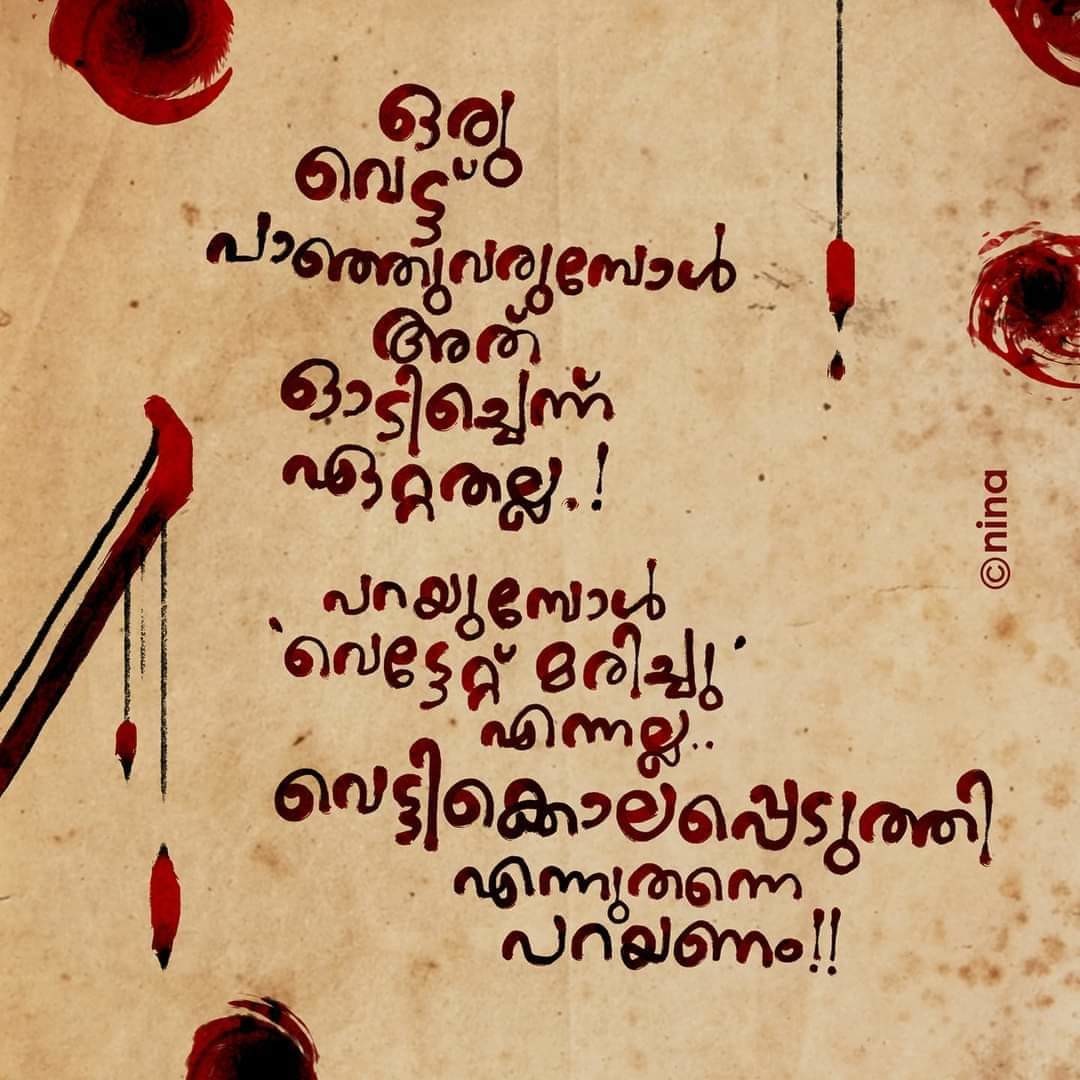 ഒരു
വെട്ട്
പാഞ്ഞുവരുമ്പോൾ
അത്
ഓടിച്ചെന്ന്
ഏറ്റതല്ല.!
പറയുമ്പോൾ
'വെട്ടേറ്റ് മരിച്ചു'
എന്നല്ല..
വെട്ടിക്കൊലപ്പെടുത്തി
എന്നുതന്നെ
പറയണം!!
©nina